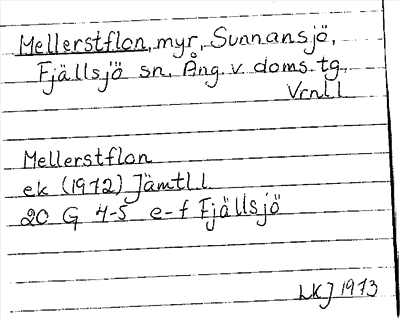 Mellerstflon, myr, Sunnansjö,
Fjällsjö sn. Ång. v. doms. tg.
Vrnll
Mellerstflon
ek (1972) Jämtl l.
20 G 4-5 e-f Fjällsjö
LKJ 1973